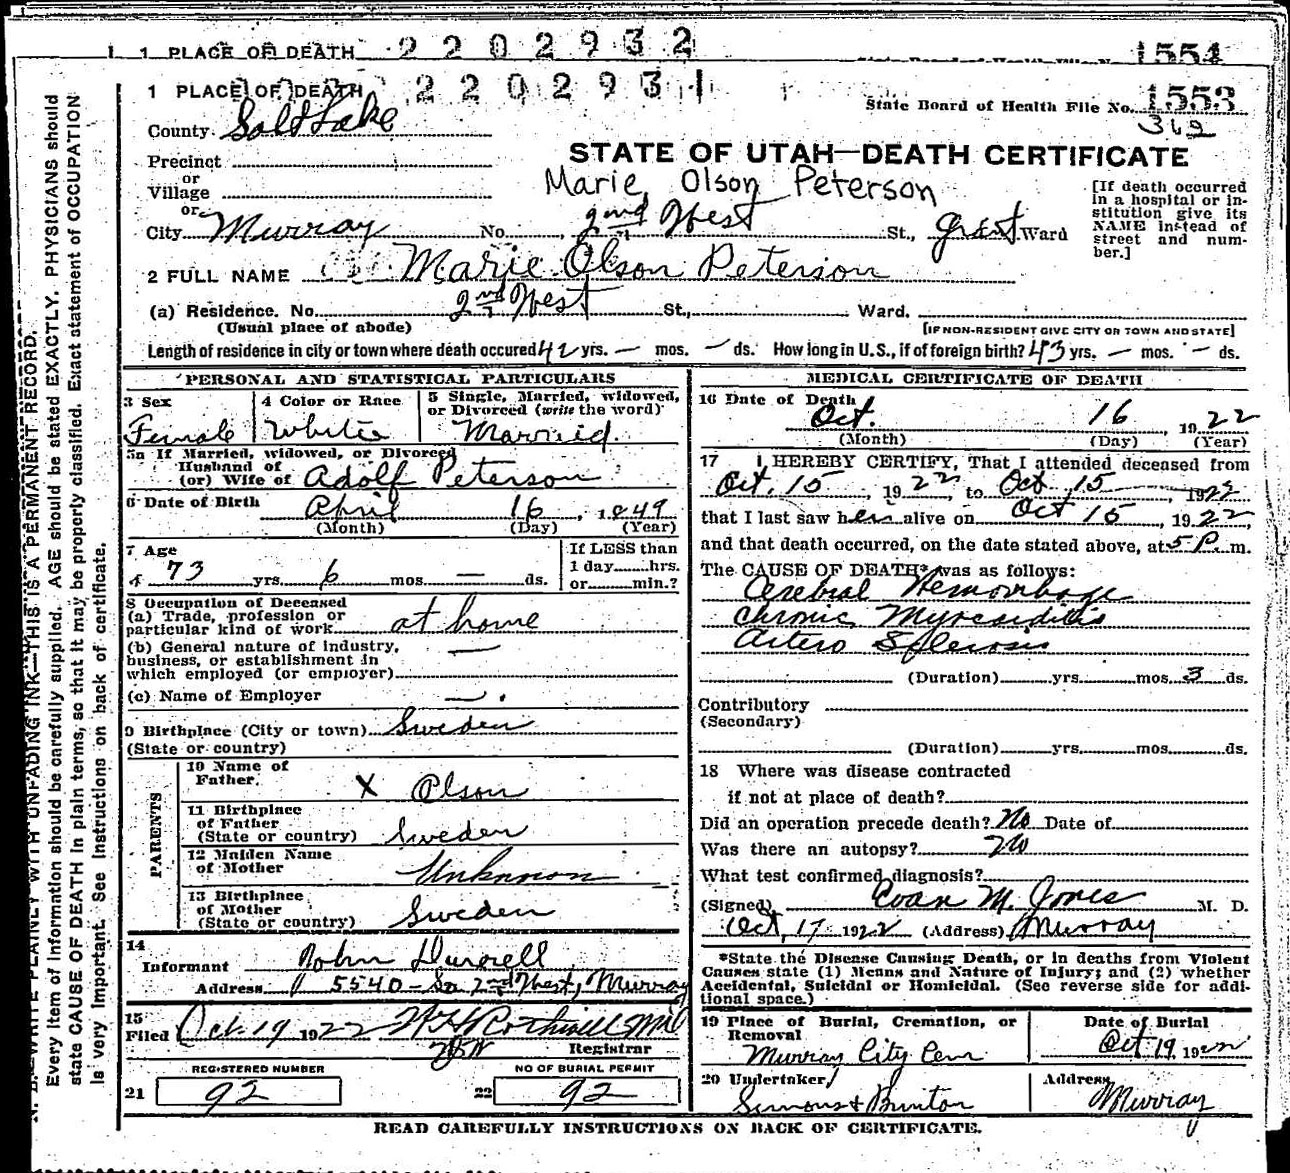 1 PLACE OF DEATH 2 2 0 2 9 3 2 1554
1 PLACE OF DEATH 2 2 0 2 9 3 1
State Board of Health File No. 1553
362
County Salt Lake
STATE OF UTAH—DEATH CERTIFICATE
Precinct
or
Village
Marie Olson Peterson
[If death occurred in a hospital or institution give its NAME instead of street and number.]
or
City Murray No. 2nd West St., Ward
2 FULL NAME Marie Olson Peterson
(a) Residence. No. 2nd West St., Ward.
(Usual place of abode) [IF NON-RESIDENT GIVE CITY OR TOWN AND STATE]
Length of residence in city or town where death occured 42 yrs. — mos. — ds. How long in U.S., if of foreign birth? 43 yrs. — mos. — ds.
PERSONAL AND STATISTICAL PARTICULARS
3 Sex
Female
4 Color or Race
White
5 Single, Married, widowed, or Divorced (write the word)
Married.
5a If Married, widowed, or Divorced
Husband of
(or) Wife of Adolf Peterson
6 Date of Birth April 16, 1849
(Month) (Day) (Year)
7 Age
73 yrs. 6 mos. — ds.
If LESS than
1 day hrs.
or min.?
8 Occupation of Deceased
(a) Trade, profession or
particular kind of work at home
(b) General nature of industry,
business, or establishment in
which employed (or employer) —
(c) Name of Employer —.
9 Birthplace (City or town) Sweden
(State or country)
PARENTS
10 Name of
Father. X Olson
11 Birthplace
of Father
(State or country) Sweden
12 Maiden Name
of Mother Unknown
13 Birthplace
of Mother
(State or country) Sweden
14
Informant John Durrell
Address 5540 - So 2nd West, Murray
15
Filed Oct 19 1922
Registrar
REGISTERED NUMBER
21 92
NO OF BURIAL PERMIT
22 92
MEDICAL CERTIFICATE OF DEATH
16 Date of Death
Oct. 16, 1922
(Month) (Day) (Year)
17 I HEREBY CERTIFY, That I attended deceased from
Oct. 15, 1922 to Oct 15, 1922
that I last saw her alive on Oct 15, 1922,
and that death occurred, on the date stated above, at 5 P. m.
The CAUSE OF DEATH* was as follows:
Cerebral Hemorrhage
Chronic Myocarditis
Artero Sclerosis
(Duration) yrs. mos. 3 ds.
Contributory
(Secondary)
(Duration) yrs. mos. ds.
18 Where was disease contracted
if not at place of death?
Did an operation precede death? No Date of
Was there an autopsy? No
What test confirmed diagnosis?
(Signed) Evan M. Jones M. D.
Oct, 17 1922 (Address) Murray
*State the Disease Causing Death, or in deaths from Violent
Causes state (1) Means and Nature of Injury; and (2) whether
Accidental, Suicidal or Homicidal. (See reverse side for addi-
tional space.)
19 Place of Burial, Cremation, or
Removal
Murray City Cem
Date of Burial
Oct 19, 1922
20 Undertaker
Simons & Bunton
Address
Murray
READ CAREFULLY INSTRUCTIONS ON BACK OF CERTIFICATE.
N. B.—WRITE PLAINLY WITH UNFADING INK—THIS IS A PERMANENT RECORD.
Every item of information should be carefully supplied. AGE should be stated EXACTLY. PHYSICIANS should
state CAUSE OF DEATH in plain terms, so that it may be properly classified. Exact statement of OCCUPATION
is very important. See instructions on back of certificate.